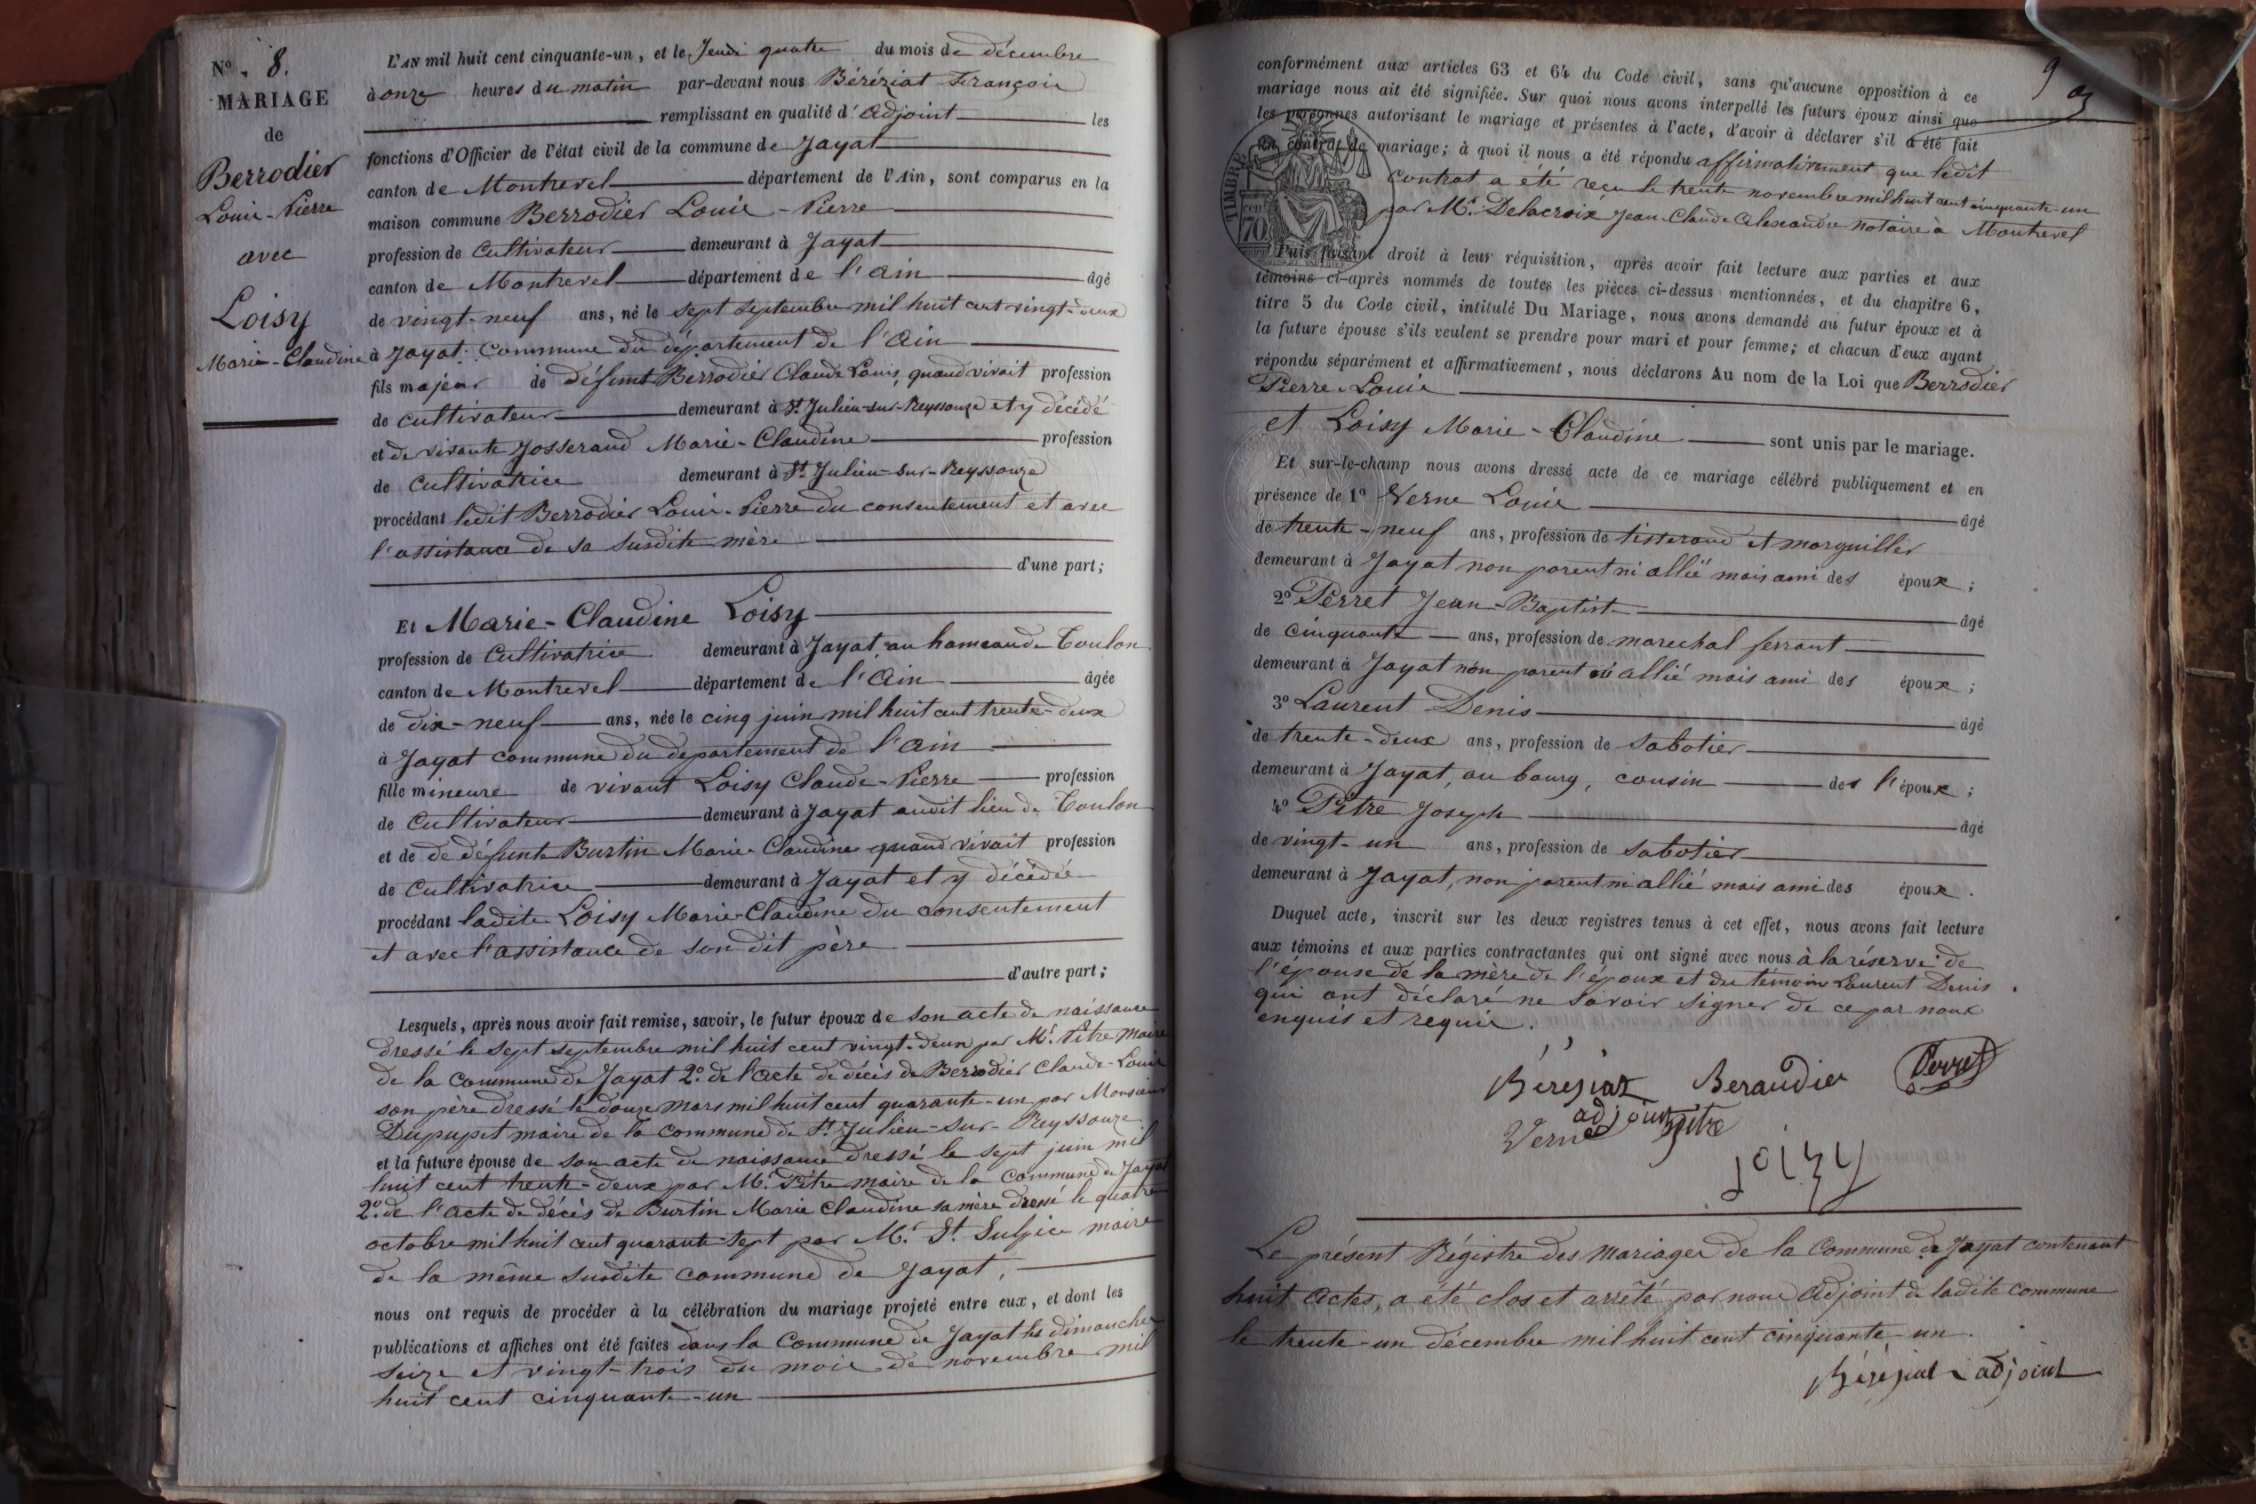 N° 8.
MARIAGE
de
Berrodier
Louis-Pierre
avec
Loisy
Marie-Claudine
L'AN mil huit cent cinquante-un, et le Jeudi quatre du mois de décembre
à onze heures du matin par-devant nous Béréziat François
remplissant en qualité d'adjoint les
fonctions d'Officier de l'état civil de la commune de Jayat
canton de Montrevel département de l'Ain, sont comparus en la
maison commune Berrodier Louis-Pierre
profession de cultivateur demeurant à Jayat
canton de Montrevel département de l'ain âgé
de vingt-neuf ans, né le sept septembre mil huit cent vingt-deux
à Jayat commune du département de l'ain
fils majeur de défunt Berrodier Claude Louis, quand vivait profession
de cultivateur demeurant à St Julien-sur-Reyssouze et y décédé
et de vivante Josserand Marie-Claudine profession
de cultivatrice demeurant à St Julien-sur-Reyssouze
procédant ledit Berrodier Louis-Pierre du consentement et avec
l'assistance de sa susdite mère
d'une part;
Et Marie-Claudine Loisy
profession de cultivatrice demeurant à Jayat au hameau de Toulon
canton de Montrevel département de l'ain âgée
de dix-neuf ans, née le cinq juin mil huit cent trente-deux
à Jayat commune du département de l'ain
fille mineure de vivant Loisy Claude-Pierre profession
de cultivateur demeurant à Jayat audit lieu de Toulon
et de de défunte Burtin Marie-Claudine quand vivait profession
de cultivatrice demeurant à Jayat et y décédée
procédant ladite Loisy Marie-Claudine du consentement
et avec l'assistance de son dit père
d'autre part;
Lesquels, après nous avoir fait remise, savoir, le futur époux de son acte de naissance
dressé le sept septembre mil huit cent vingt-deux par Mr. Pitre maire
de la commune de Jayat 2° de l'acte de décès de Berrodier Claude-Louis
son père dressé le douze mars mil huit cent quarante-un par Monsieur
Dupupet maire de la commune de St Julien-sur-Reyssouze
et la future épouse de son acte de naissance dressé le sept juin mil
huit cent trente-deux par Mr Pitre maire de la commune de Jayat
2° de l'acte de décès de Burtin Marie Claudine sa mère dressé le quatre
octobre mil huit cent quarante-sept par Mr. St. Sulpice maire
de la même susdite commune de Jayat,
nous ont requis de procéder à la célébration du mariage projeté entre eux, et dont les
publications et affiches ont été faites dans la commune de Jayat les dimanches
seize et vingt-trois du mois de novembre mil
huit cent cinquante-un
9
conformément aux articles 63 et 64 du Code civil, sans qu'aucune opposition à ce
mariage nous ait été signifiée. Sur quoi nous avons interpellé les futurs époux ainsi que
les personnes autorisant le mariage et présentes à l'acte, d'avoir à déclarer s'il a été fait
un contrat de mariage; à quoi il nous a été répondu affirmativement que ledit
contrat a été reçu le trente novembre mil huit cent cinquante-un
par Mr. Delacroix Jean-Claude Alexandre notaire à Montrevel
TIMBRE
70
Puis faisant droit à leur réquisition, après avoir fait lecture aux parties et aux
témoins ci-après nommés de toutes les pièces ci-dessus mentionnées, et du chapitre 6,
titre 5 du Code civil, intitulé Du Mariage, nous avons demandé au futur époux et à
la future épouse s'ils veulent se prendre pour mari et pour femme; et chacun d'eux ayant
répondu séparément et affirmativement, nous déclarons Au nom de la Loi que Berrodier
Pierre-Louis
et Loisy Marie-Claudine sont unis par le mariage.
Et sur-le-champ nous avons dressé acte de ce mariage célébré publiquement et en
présence de 1° Verne Louis âgé
de trente-neuf ans, profession de tisserand et marguillier
demeurant à Jayat non parent ni allié mais ami des époux;
2° Perret Jean-Baptiste âgé
de cinquante ans, profession de marechal ferrant
demeurant à Jayat non parent ni allié mais ami des époux;
3° Laurent Denis âgé
de trente-deux ans, profession de sabotier
demeurant à Jayat, au bourg, cousin des l'époux;
4° Pitre Joseph âgé
de vingt-un ans, profession de sabotier
demeurant à Jayat, non parent ni allié mais ami des époux.
Duquel acte, inscrit sur les deux registres tenus à cet effet, nous avons fait lecture
aux témoins et aux parties contractantes qui ont signé avec nous à la réserve de
l'épouse de la mère de l'époux et du témoin Laurent Denis
qui ont déclaré ne savoir signer de ce par nous
enquis et requis.
Béréziat Beraudier Perret
adjoint Pitre
Verne
Loizy
Le présent Régistre des mariages de la Commune de Jayat contenant
huit actes, a été clos et arrêté par nous adjoint de ladite commune
le trente-un décembre mil huit cent cinquante-un.
Béréziat adjoint